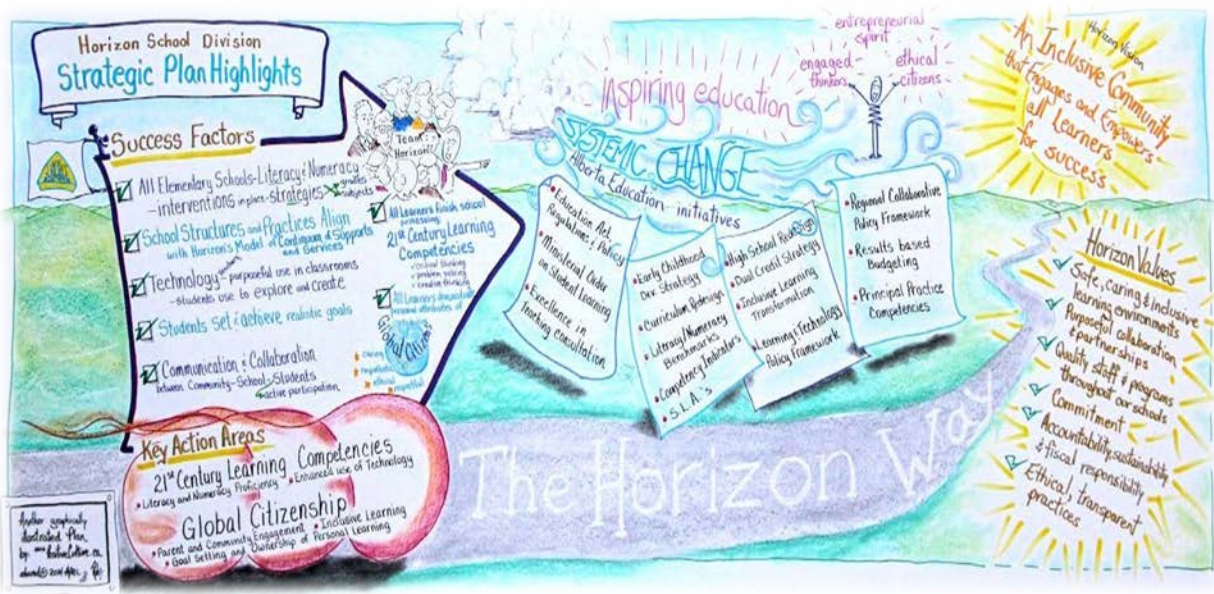 Horizon School Division
Strategic Plan Highlights
Success Factors
All Elementary Schools-Literacy & Numeracy
-interventions in place-strategies
grades
subjects
School Structures and Practices Align
with Horizon's Model of Continuum of Supports
and Services
Technology-purposeful use in classrooms
-students use to explore and create
Students set & achieve realistic goals
Communication & Collaboration
between Community-School-Students
active participation
Team
Horizon!!
All Learners finish school
21st Century Learning
Competencies
✓critical thinking
✓problem solving
✓creative thinking
All Learners demonstrate
personal attributes of
Global Citizens
caring
ethical
respectful
Key Action Areas
21st Century Learning Competencies
•Literacy and Numeracy Proficiency •Enhanced use of Technology
Global Citizenship
•Parent and Community Engagement •Inclusive Learning
•Goal Setting and Ownership of Personal Learning
Another graphically
illustrated Plan
by
inspiring education
SYSTEMIC CHANGE
Alberta Education initiatives
entrepreneurial
spirit
engaged
thinkers
ethical
citizens
•Education Act
Regulations & Policy
•Ministerial Order
on Student Learning
•Excellence in
Teaching consultation
•Early Childhood
Dev. Strategy
•Curriculum Redesign
•Literacy/Numeracy
Benchmarks
•Competency Indicators
•S.L.A.'s
•High School Redesign
•Dual Credit Strategy
•Inclusive Learning
Transformation
•Learning & Technology
Policy Framework
•Regional Collaborative
Policy Framework
•Results based
Budgeting
•Principal Practice
Competencies
The Horizon Way
Horizon Vision
An Inclusive Community
that Engages and Empowers
all Learners
for success
Horizon Values
Safe, caring & inclusive
learning environments
Purposeful collaboration
& partnerships
Quality staff & programs
throughout our schools
Commitment
Accountability, sustainability
& fiscal responsibility
Ethical, transparent
practices